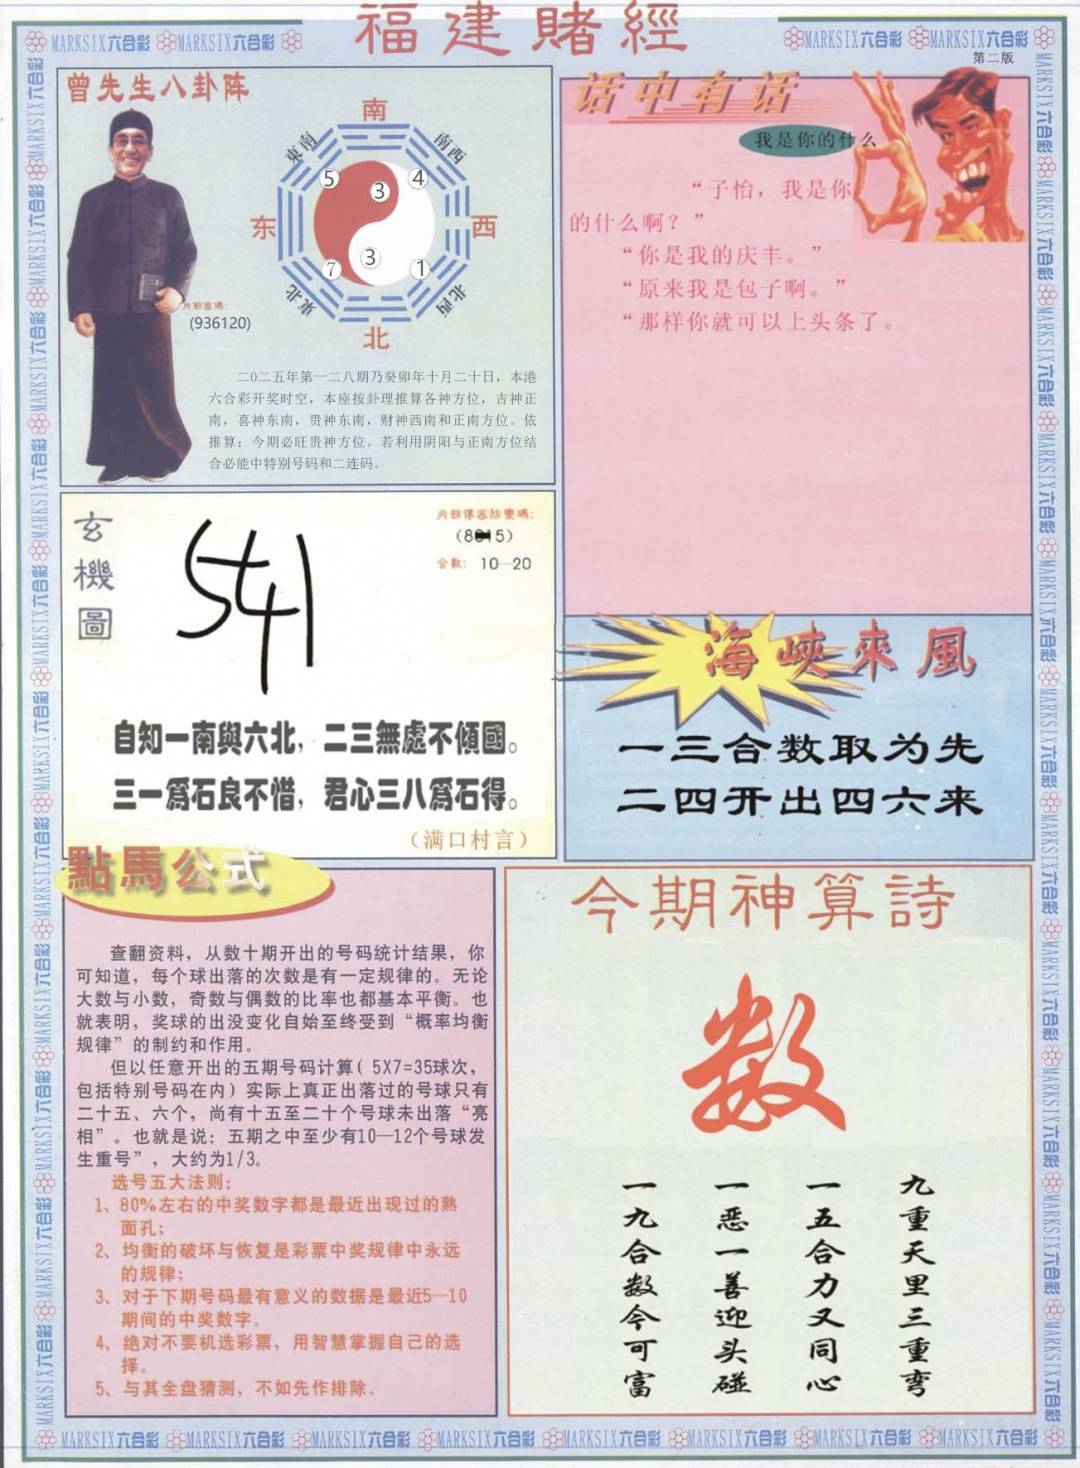 福建賭經
MARKSIX六合彩 MARKSIX六合彩
MARKSIX六合彩 MARKSIX六合彩
第二版
曾先生八卦阵
南
東南
南西
5
3
4
东
西
7
3
1
東北
北西
北
内部密碼:
(936120)
二0二五年第一二八期乃癸卯年十月二十日，本港
六合彩开奖时空，本座按卦理推算各神方位，吉神正
南，喜神东南，贵神东南，财神西南和正南方位。依
推算：今期必旺贵神方位。若利用阴阳与正南方位结
合必能中特别号码和二连码。
话中有话
我是你的什么
“子怡，我是你
的什么啊？”
“你是我的庆丰。”
“原来我是包子啊。”
“那样你就可以上头条了。
玄機圖
541
内部傳密防變碼:
合數: 10—20
自知一南與六北，二三無處不傾國。
三一爲石良不惜，君心三八爲石得。
（满口村言）
海峽來風
一三合数取为先
二四开出四六来
點馬公式
查翻资料，从数十期开出的号码统计结果，你
可知道，每个球出落的次数是有一定规律的。无论
大数与小数，奇数与偶数的比率也都基本平衡。也
就表明，奖球的出没变化自始至终受到“概率均衡
规律”的制约和作用。
但以任意开出的五期号码计算( 5X7=35球次，
包括特别号码在内）实际上真正出落过的号球只有
二十五、六个，尚有十五至二十个号球未出落“亮
相”。也就是说：五期之中至少有10—12个号球发
生重号”，大约为1/3。
选号五大法则：
1、80%左右的中奖数字都是最近出现过的熟
面孔；
2、均衡的破坏与恢复是彩票中奖规律中永远
的规律；
3、对于下期号码最有意义的数据是最近5—10
期间的中奖数字。
4、绝对不要机选彩票，用智慧掌握自己的选
择。
5、与其全盘猜测，不如先作排除。
今期神算詩
数
九重天里三重弯
一五合力又同心
一恶一善迎头碰
一九合数今可富
MARKSIX六合彩 MARKSIX六合彩 MARKSIX六合彩 MARKSIX六合彩 MARKSIX六合彩 MARKSIX六合彩 MARKSIX六合彩 MARKSIX六合彩